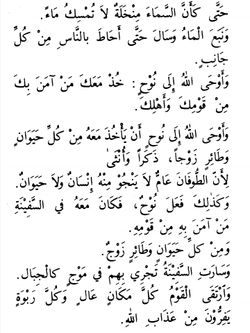 حَتَّى كَأَنَّ السَّمَاءَ مِنْخَلَةٌ لاَ تُمْسِكُ مَاءً.
وَنَبَعَ الْمَاءُ وَسَالَ حَتَّى أَحَاطَ بِالنَّاسِ مِنْ كُلِّ
جَانِبٍ.
وَأَوْحَى اللهُ إِلَى نُوْحٍ : خُذْ مَعَكَ مَنْ آمَنَ بِكَ
مِنْ قَوْمِكَ وَأَهْلِكَ.
وَأَوْحَى اللهُ إِلَى نُوحٍ أَنْ يَأْخُذَ مَعَهُ مِنْ كُلِّ حَيَوَانٍ
وَطَائِرٍ زَوْجاً، ذَكَراً وَأُنْثَى
لِأَنَّ الطُّوفَانَ عَامٌّ لاَ يَنْجُوْ مِنْهُ إِنْسَانٌ وَلاَ حَيَوَانٌ.
وَكَذٰلِكَ فَعَلَ نُوْحٌ، فَكَانَ مَعَهُ فِي السَّفِيْنَةِ
مَنْ آمَنَ بِهِ مِنْ قَوْمِهِ.
وَمِنْ كلِّ حَيَوَانٍ وَطَائِرٍ زَوْجٌ.
وَسَارَتِ السَّفِيْنَةُ تَجْرِي بِهِمْ فِي مَوْجٍ كَالْجِبَالِ.
وَارْتَقَى الْقَوْمُ كُلَّ مَكَانٍ عَالٍ وَكُلَّ رَبْوَةٍ
يَفِرُّونَ مِنْ عَذَابِ اللهِ.